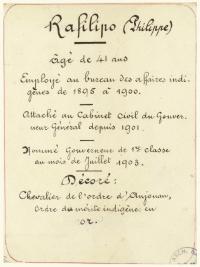 Rafilipo (Philippe)
Âgé de 41 ans
Employé au bureau des affaires indi-
gènes de 1895 à 1900.
Attaché au Cabinet civil du Gouver-
neur Général depuis 1901.
Nommé Gouverneur de 1re classe
au mois de Juillet 1903.
Décoré:
Chevalier de l'ordre d'Anjouan,
Ordre du mérite indigène en
or.